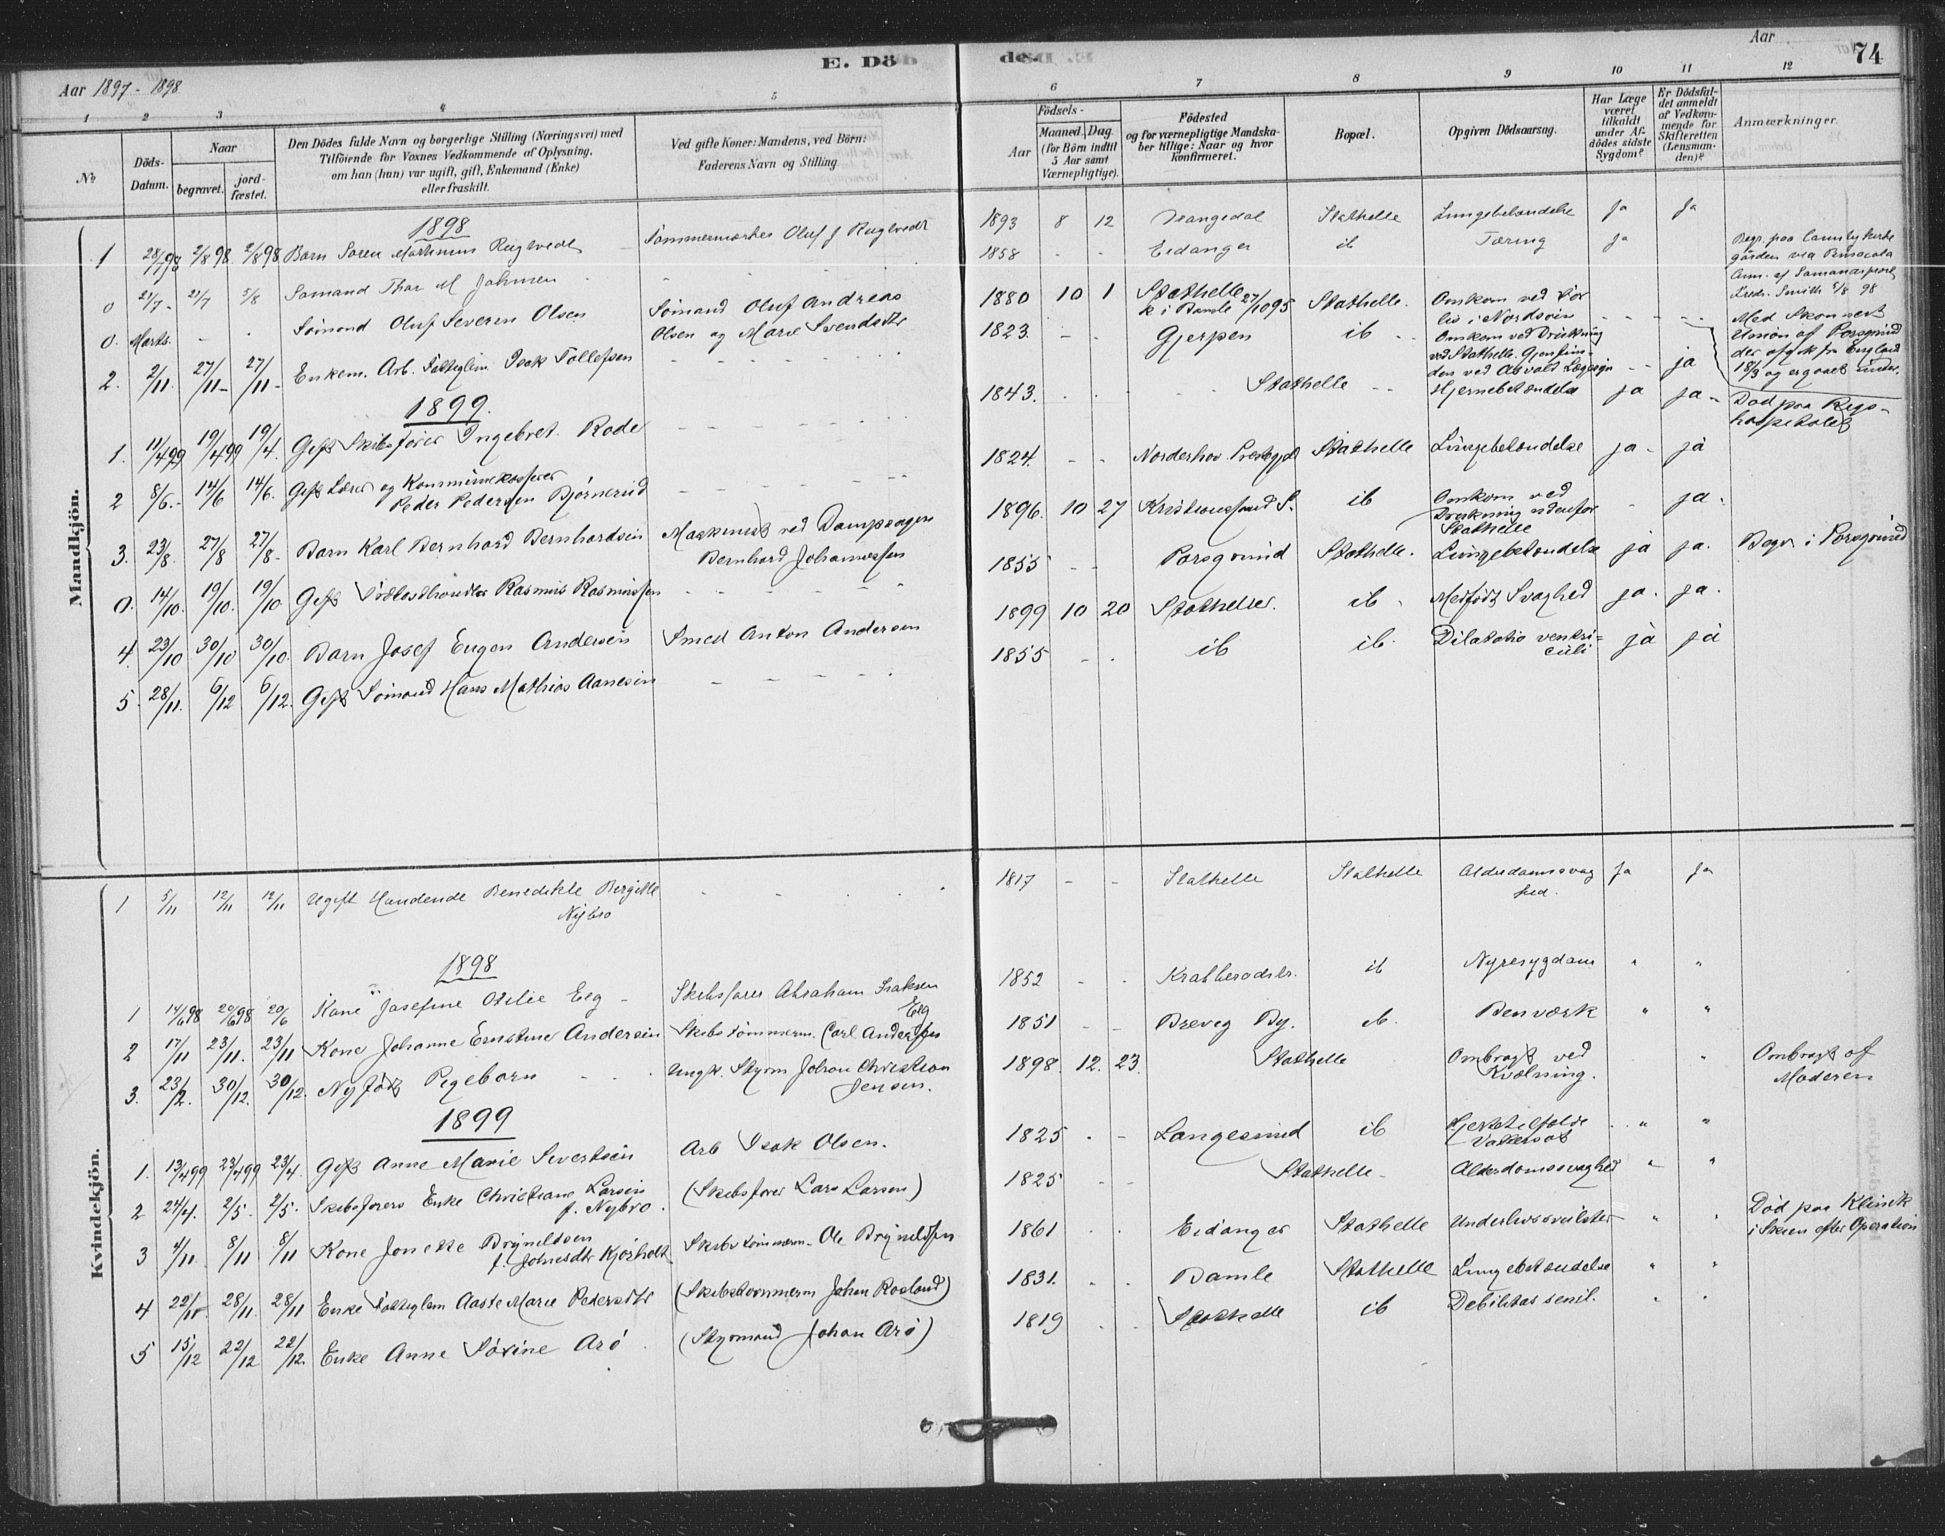 Aar 1897 - 1898
E. Dö
de.
Aar
74
1 2 3 4 5 6 7 8 9 10 11 12
No
Döds-
Datum.
Naar
begravet.
jord-
fæstet.
Den Dödes fulde Navn og borgerlige Stilling (Næringsvei) med
Tilföiende for Voxnes Vedkommende af Oplysning,
om han (hun) var ugift, gift, Enkemand (Enke)
eller fraskilt.
Ved gifte Koner: Mandens, ved Börn:
Faderens Navn og Stilling.
Födsels-
Aar
Maaned. Dag.
(for Börn indtil
5 Aar samt
Værnepligtige).
Födested
og for værnepligtige Mandska-
ber tillige: Naar og hvor
konfirmeret.
Bopæl.
Opgiven Dödsaarsag.
Har Læge
været
tilkaldt
under Af-
dödes sidste
Sygdom?
Er Dödsfal-
det anmeldt
af Vedkom-
mende for
Skifteretten
(Lensman-
den)?
Anmærkninger.
Mandkjön.
1898
1 28/7 98 2/8 98 2/8 98 Barn Søren Martinius Rugtvedt Tømmermærker Oluf J Rugtvedt 1893 8 12 Sangedal Stathelle Lungebetændelse Ja Ja
0 21/7 - 21/7 5/8 Sømand Thor M Johnsen 1858 Eidanger ib Tæring Ja
gården ved Pensacola
98
0. Marts. - Sømand Oluf Severin Olsen Sømand Oluf Andreas
Olsen og Marie Svendsdtr 1880 10 1 Stathelle
k i Bamle 27/10 95 Stathelle. Omkom ved For
lis i Nordsøen
Med Skonnert
Union af Porsgrund
der afgik fra England
18/3 og er gaaet under.
2. 2/11. 27/11 - 27/11 - Enkem. Arb. Fattiglem Isak Tollefsen 1823. - - Gjerpen ib Omkom ved Drukning
ved Stathelle. Gjenfun-
den ved Asvald - - ja
1899.
1. 11/4 99 19/4 99 19/4. Gift Skibsfører Ingebret Rode 1843. Stathelle Hjernebetændelse ja ja - Død paa Rigs-
hospitalet
2 8/6. - 14/6 14/6. Gift Lærer og Kommunekasserer
Peder Pedersen Bjørnerud 1824. - - Norderhov Prestegjeld Stathelle Lungebetændelse ja - ja
3. 23/8. 27/8 27/8 - Barn Karl Bernhard Bernhardsen Maskinist ved Dampsagen
Bernhard Johannessen 1896. 10 27 Kristianssund S. ib Omkom ved
Drukning udenfor
Stathelle - ja.
0. 14/10. 19/10. 19/10. Gift Rasmus Rasmussen 1855 - - Porsgrund Stathelle. Lungebetændelse ja ja. Begr i Porsgrund
4. 23/10 30/10 30/10. Barn Josef Eugen Andersen Smed Anton Andersen 1899 10 20 Stathelle. ib - Medfødt Svaghed ja. ja.
5. 28/11. 6/12 6/12. Gift Sømand Hans Mathias Aanesen 1855 - . ib ib. Dilatatio ventri-
culi ja ja
Kvindekjön.
1 5/11 12/11 12/11 Ugift Handlende Benedikte Birgitte
Nybro 1817 - - Stathelle Stathelle Alderdomssvag
hed. Ja Ja
1898
1 14/6 98 20/6 98 20/6 Kone Josefine Otilie Eeg Skibsfører Abraham Isaksen
Eeg 1852 - - ib Nyresygdom " "
2 17/11 23/11. 23/11 Kone Johanne Ernstine Andersen Skibstømmerm. Carl Andersen 1851 - - Brevig By. ib. Benværk " "
3. 23/12. 30/12. 30/12. Nyfødt Pigebarn Ungk. Styrm Johan Christian
Jensen. 1898. 12. 23. Stathelle Ombragt ved
Kvælning. " Ombragt af
Moderen
1899
1. 13/4 99 23/4 99 23/4. Gift Anne Marie Sivertsen Arb Isak Olsen. 1825 - - Langesund ib Hjertelfeldt
Vatersot " "
2 24/4. 2/5. 2/5. Skibsførers Enke Christiane Larsen
f. Nybro. (Skibsfører Lars Larsen) 1825 - - Stathelle - Alderdomssvaghed " "
3 4/11 8/11 8/11 Kone Jonette Brynildsen
f. Johnsdtr Kjørholt Skibstømmerm. Ole Brynildsen 1861 Eidanger Stathelle Underlivssvulster " " Død paa Klinik
i Skien efter Operation
4 22/11. 28/11. 28/11 Enke Fattiglem Aaste Marie Pedersdtr (Skibstømmerm Johan Rosland) 1831. Bamle Stathelle Lungebetændelse " "
5 15/12 22/12 22/12. Enke Anne Sørine Arø (Styrmand Johan Arø) 1819 Stathelle ib Debilitas senil. " "